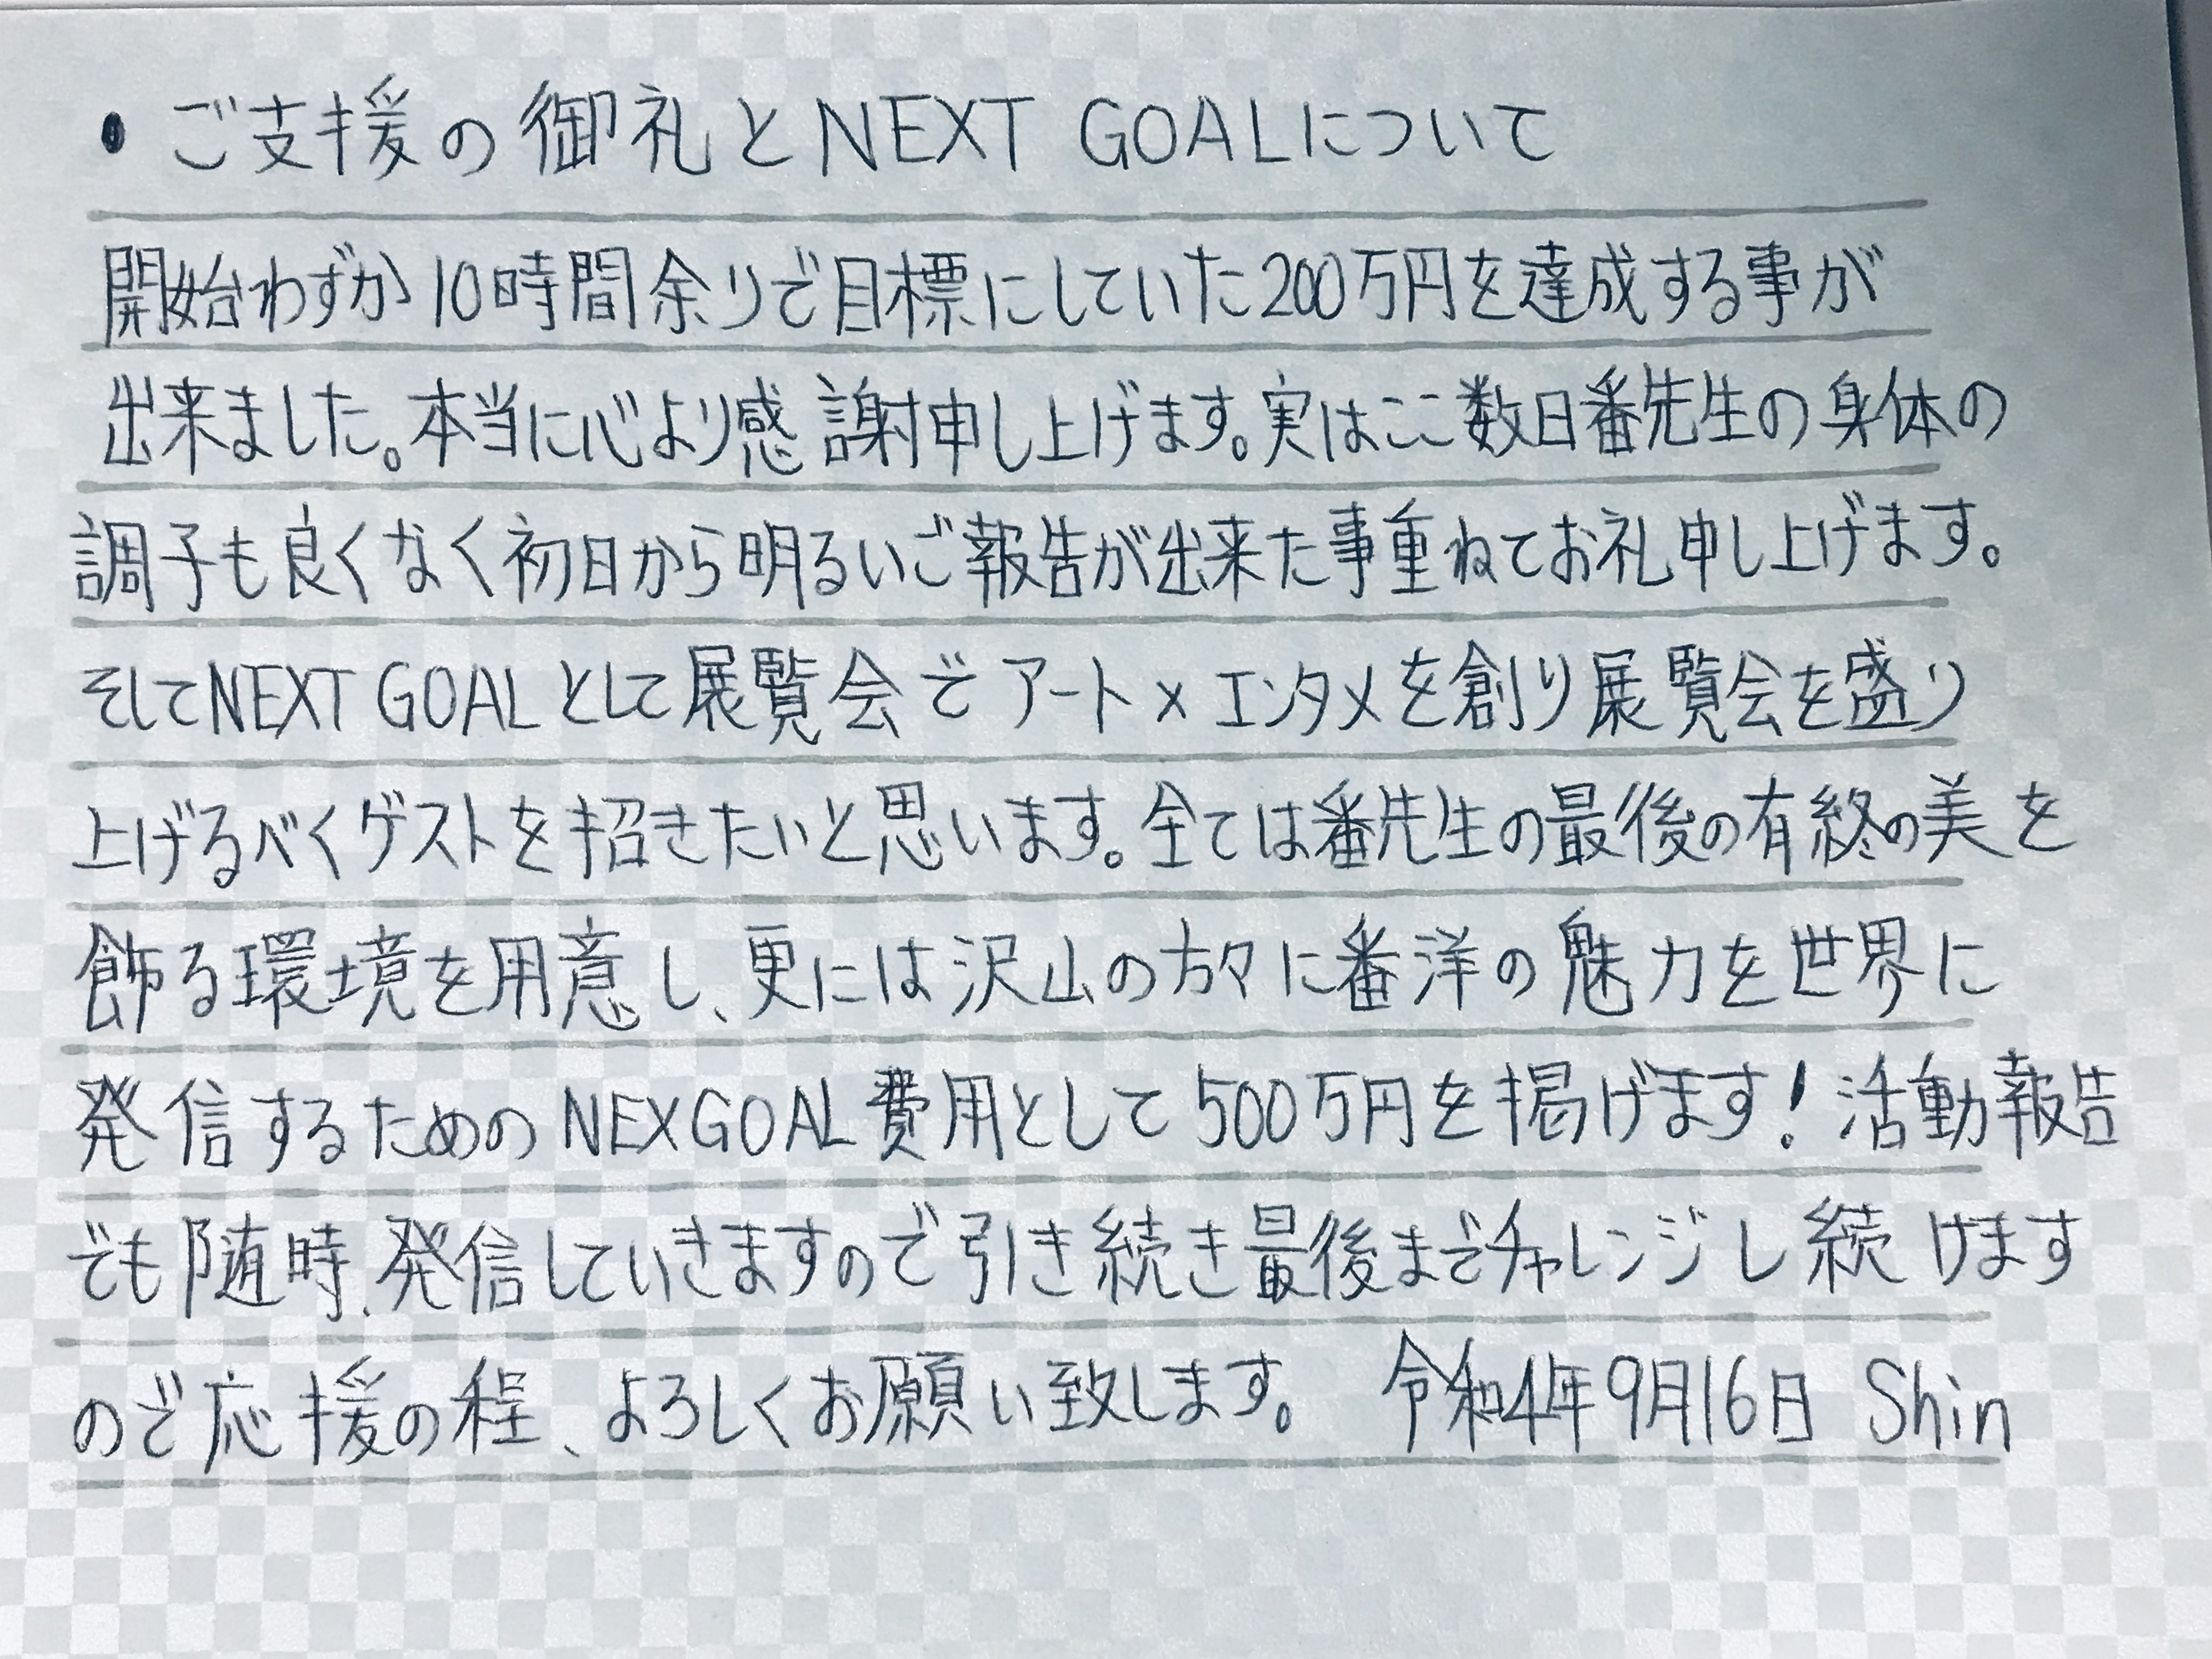 • ご支援の御礼とNEXT GOALについて
開始わずか10時間余りで目標にしていた200万円を達成する事が
出来ました。本当に心より感謝申し上げます。実はここ数日番先生の身体の
調子も良くなく初日から明るいご報告が出来た事重ねてお礼申し上げます。
そしてNEXT GOALとして展覧会でアート×エンタメを創り展覧会を盛り
上げるべくゲストを招きたいと思います。全ては番先生の最後の有終の美を
飾る環境を用意し、更には沢山の方々に番洋の魅力を世界に
発信するためのNEXGOAL費用として500万円を掲げます！活動報告
でも随時、発信していきますので引き続き最後までチャレンジし続けます
ので応援の程、よろしくお願い致します。 令和4年9月16日 Shin